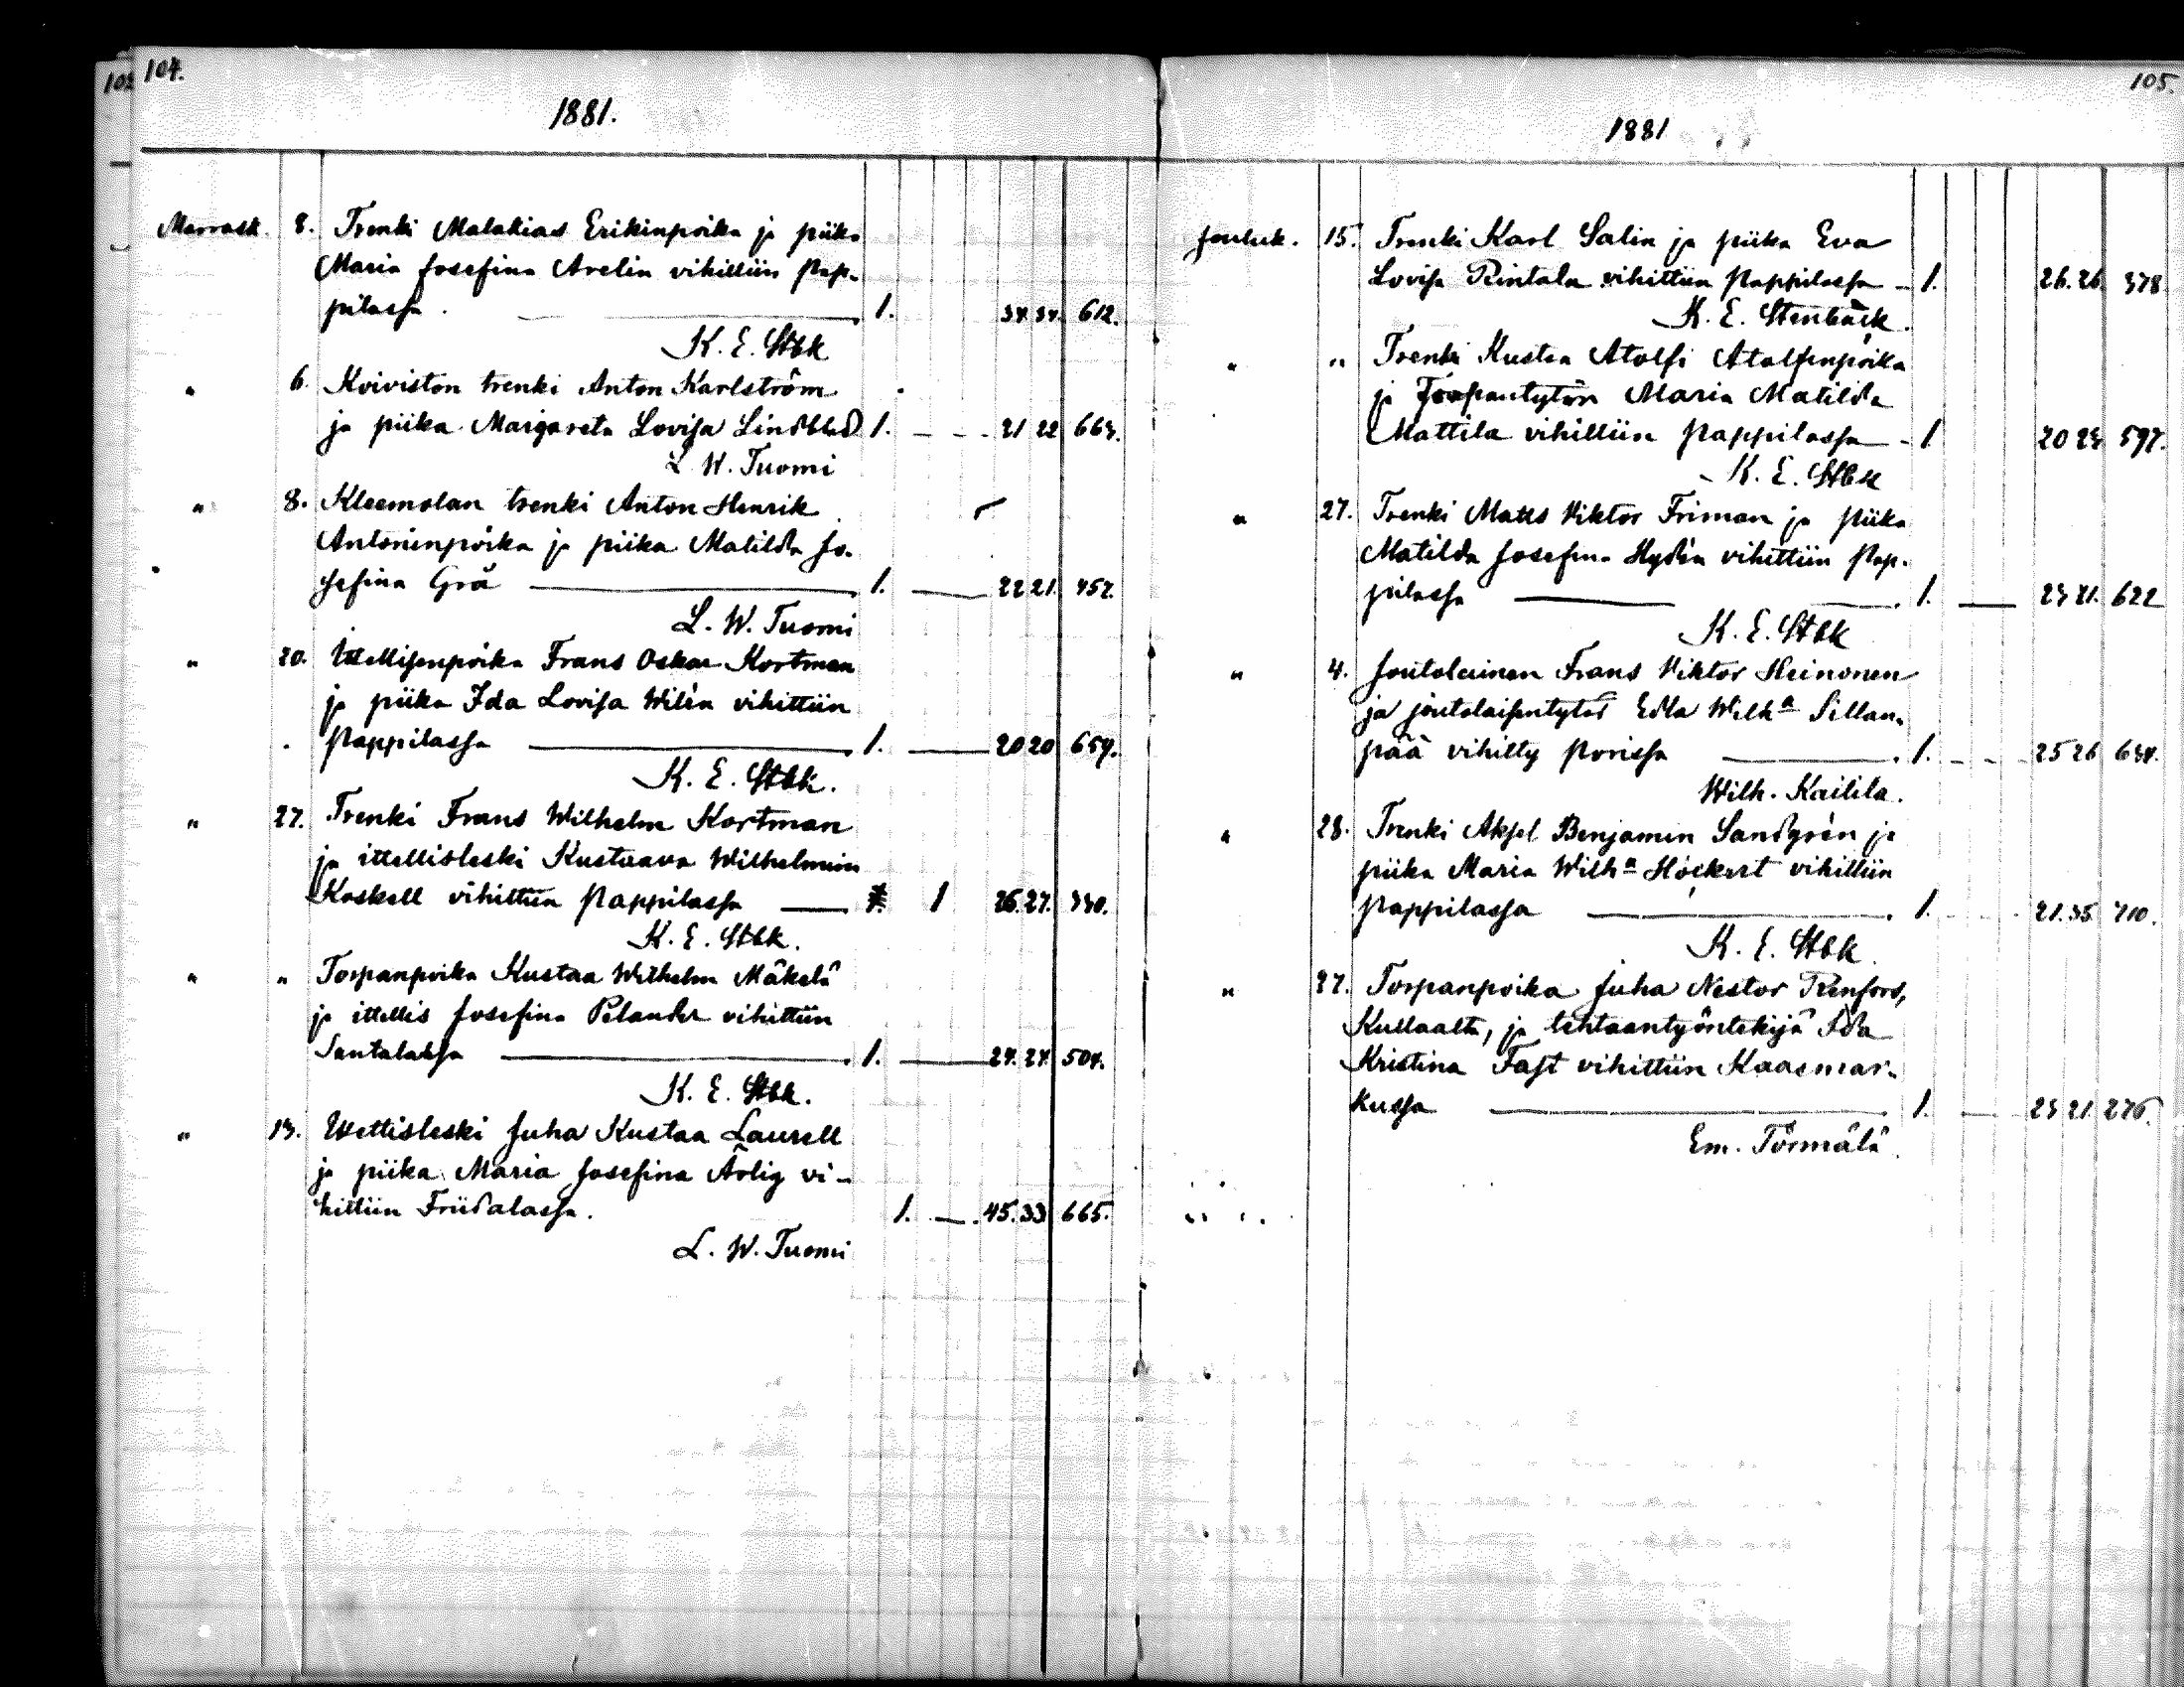 104.
1881.
Marrask. 8. Trenki Malakias Erikinpoika ja piika
Maria Josefina Avelin vihittiin Pap-
pilassa. 1. 34. 34. 612.
K. E. Stbk
" 6. Koiviston trenki Anton Karlström
ja piika Margareta Lovisa Lindblad 1. 21 22 663.
L. W. Tuomi
" 8. Kleemolan trenki Anton Henrik
Antoninpoika ja piika Matilda Jo-
sefina Grå 1. 22 21. 457.
L. W. Tuomi
" 20. Ittellisenpoika Frans Oskar Kortman
ja piika Ida Lovisa Wilén vihittiin
Pappilassa 1. 20 20 659.
K. E. Stbk.
" 27. Trenki Frans Wilhelm Kortman
ja ittellisleski Kustaava Wilhelmiin
Koskell vihittiin Pappilassa 1 26. 27. 330.
K. E. Stbk.
" " Torpanpoika Kustaa Wilhelm Mäkelä
ja ittellis Josefina Pelander vihittiin
Santalassa 1. 24. 24. 504.
K. E. Stbk.
" 13. Ittellisleski Juha Kustaa Laurell
ja piika Maria Josefina Ärlig vi-
hittiin Friidalassa. 1. 45. 33 665.
L. W. Tuomi
105.
1881
Jouluk. 15. Trenki Karl Salin ja piika Eva
Lovisa Rintala vihittiin Pappilassa 1. 26. 26. 378
K. E. Stenbäck.
" " Trenki Kustaa Atolfi Atolfinpoika
ja Torpantytön Maria Matilda
Mattila vihittiin Pappilassa 1 20 23 597.
K. E. Stbk
" 27. Trenki Matts Viktor Friman ja piika
Matilda Josefina Hydén vihittiin Pap-
pilassa 1. 23 21. 622
K. E. Stbk
" 4. Joutolainen Frans Viktor Heinonen
ja joutolaisentytär Edla Wilhª Sillan-
pää vihitty Porissa 1. 25 26 634.
Wilh. Kailila.
" 28. Trenki Aksel Benjamin Sandgrén ja
piika Maria Wilhª Höckert vihittiin
Pappilassa 1. 21. 35 710.
K. E. Stbk.
" 27. Torpanpoika Juha Nestor Renfors,
Kullaalta, ja tehtaantyöntekijä Ida
Kristina Fast vihittiin Kaasmar-
kussa 1. 23 21. 276.
Em. Törmälä.